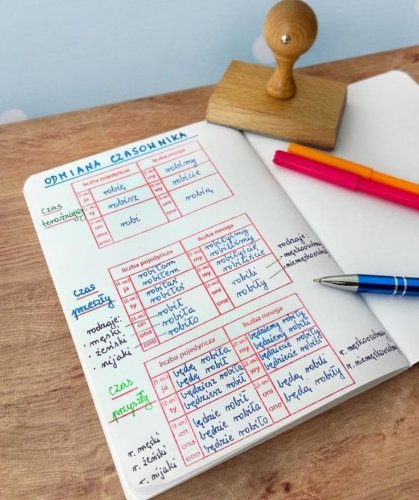 ODMIANA CZASOWNIKA
czas
teraźniejszy
liczba pojedyncza
liczba mnoga
ja
robię
my
robimy
ty
robisz
wy
robicie
on
ona
ono
robi
oni
one
robią
czas
przeszły
rodzaje:
• męski
• żeński
• nijaki
liczba pojedyncza
liczba mnoga
ja
robiłam
robiłem
my
robiłyśmy
robiliśmy
ty
robiłaś
robiłeś
wy
robiłyście
robiliście
on
ona
ono
robił
robiła
robiło
oni
one
robili
robiły
rodzaje:
• męskoosobowy
• niemęskoosobowy
czas
przyszły
r. męski
r. żeński
r. nijaki
liczba pojedyncza
liczba mnoga
ja
będę robiła
będę robił
my
będziemy robiły
będziemy robili
ty
będziesz robiła
będziesz robił
wy
będziecie robiły
będziecie robili
on
ona
ono
będzie robił
będzie robiła
będzie robiło
oni
one
będą robili
będą robiły
r. męskoosobowy
r. niemęskoosobowy